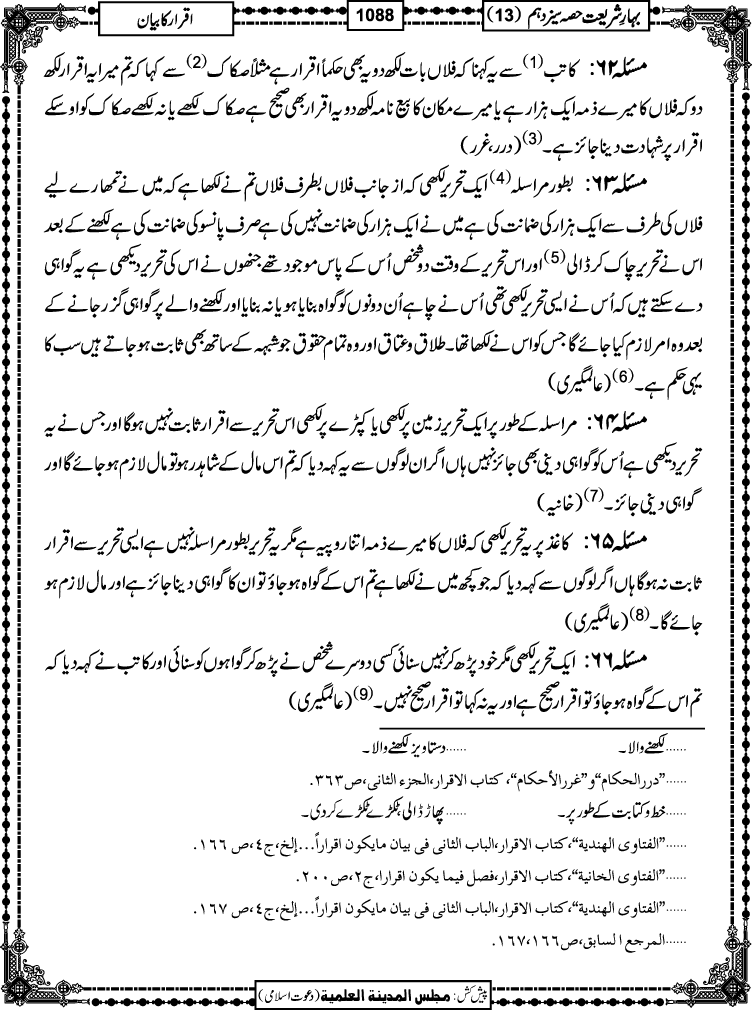 بہارِ شریعت حصہ سیزدہم (13)
1088
اقرار کا بیان
مسئلہ ۶۲: کاتب(1) سے یہ کہنا کہ فلاں بات لکھ دو یہ بھی حکماً اقرار ہے مثلاً صکاک(2) سے کہا کہ تم میرا یہ اقرار لکھ
دو کہ فلاں کا میرے ذمہ ایک ہزار ہے یا میرے مکان کا بیع نامہ لکھ دو یہ اقرار بھی صحیح ہے صکاک لکھے یا نہ لکھے صکاک کو اوسکے
اقرار پر شہادت دینا جائز ہے۔(3) (درر، غرر)
مسئلہ ۶۳: بطور مراسلہ(4) ایک تحریر لکھی کہ از جانب فلاں بطرف فلاں تم نے لکھا ہے کہ میں نے تمھارے لیے
فلاں کی طرف سے ایک ہزار کی ضمانت کی ہے میں نے ایک ہزار کی ضمانت نہیں کی ہے صرف پانسو کی ضمانت کی ہے لکھنے کے بعد
اس نے تحریر چاک کر ڈالی(5) اور اس تحریر کے وقت دو شخص اُس کے پاس موجود تھے جنھوں نے اس کی تحریر دیکھی ہے یہ گواہی
دے سکتے ہیں کہ اُس نے ایسی تحریر لکھی تھی اُس نے چاہے اُن دونوں کو گواہ بنایا ہو یا نہ بنایا اور لکھنے والے پر گواہی گزر جانے کے
بعد وہ امر لازم کیا جائے گا جس کو اس نے لکھا تھا۔ طلاق و عتاق اور وہ تمام حقوق جو شبہہ کے ساتھ بھی ثابت ہو جاتے ہیں سب کا
یہی حکم ہے۔(6) (عالمگیری)
مسئلہ ۶۴: مراسلہ کے طور پر ایک تحریر زمین پر لکھی یا کپڑے پر لکھی اس تحریر سے اقرار ثابت نہیں ہوگا اور جس نے یہ
تحریر دیکھی ہے اُس کو گواہی دینی بھی جائز نہیں ہاں اگر ان لوگوں سے یہ کہہ دیا کہ تم اس مال کے شاہد رہو تو مال لازم ہو جائے گا اور
گواہی دینی جائز۔(7) (خانیہ)
مسئلہ ۶۵: کاغذ پر یہ تحریر لکھی کہ فلاں کا میرے ذمہ اتنا روپیہ ہے مگر یہ تحریر بطور مراسلہ نہیں ہے ایسی تحریر سے اقرار
ثابت نہ ہوگا ہاں اگر لوگوں سے کہہ دیا کہ جو کچھ میں نے لکھا ہے تم اس کے گواہ ہو جاؤ تو ان کا گواہی دینا جائز ہے اور مال لازم ہو
جائے گا۔(8) (عالمگیری)
مسئلہ ۶۶: ایک تحریر لکھی مگر خود پڑھ کر نہیں سنائی کسی دوسرے شخص نے پڑھ کر گواہوں کو سنائی اور کاتب نے کہہ دیا کہ
تم اس کے گواہ ہو جاؤ تو اقرار صحیح ہے اور یہ نہ کہا تو اقرار صحیح نہیں۔(9) (عالمگیری)
......لکھنے والا۔ ......دستاویز لکھنے والا۔
......”دررالحکام“و”غررالأحکام“، کتاب الاقرار،الجزء الثانی،ص۳۶۳.
......خط و کتابت کے طور پر۔ ......پھاڑ ڈالی، ٹکڑے ٹکڑے کر دی۔
......”الفتاوی الھندیة“،کتاب الاقرار،الباب الثانی فی بیان مایکون اقراراً...إلخ،ج٤،ص ۱۶۶.
......”الفتاوی الخانیة“،کتاب الاقرار،فصل فیما یکون اقرارا،ج۲،ص۲۰۰.
......”الفتاوی الھندیة“،کتاب الاقرار،الباب الثانی فی بیان مایکون اقراراً...إلخ،ج٤،ص ۱۶۷.
......المرجع السابق،ص۱۶۶،۱۶۷.
پیش کش: مجلس المدینة العلمیة (دعوت اسلامی)